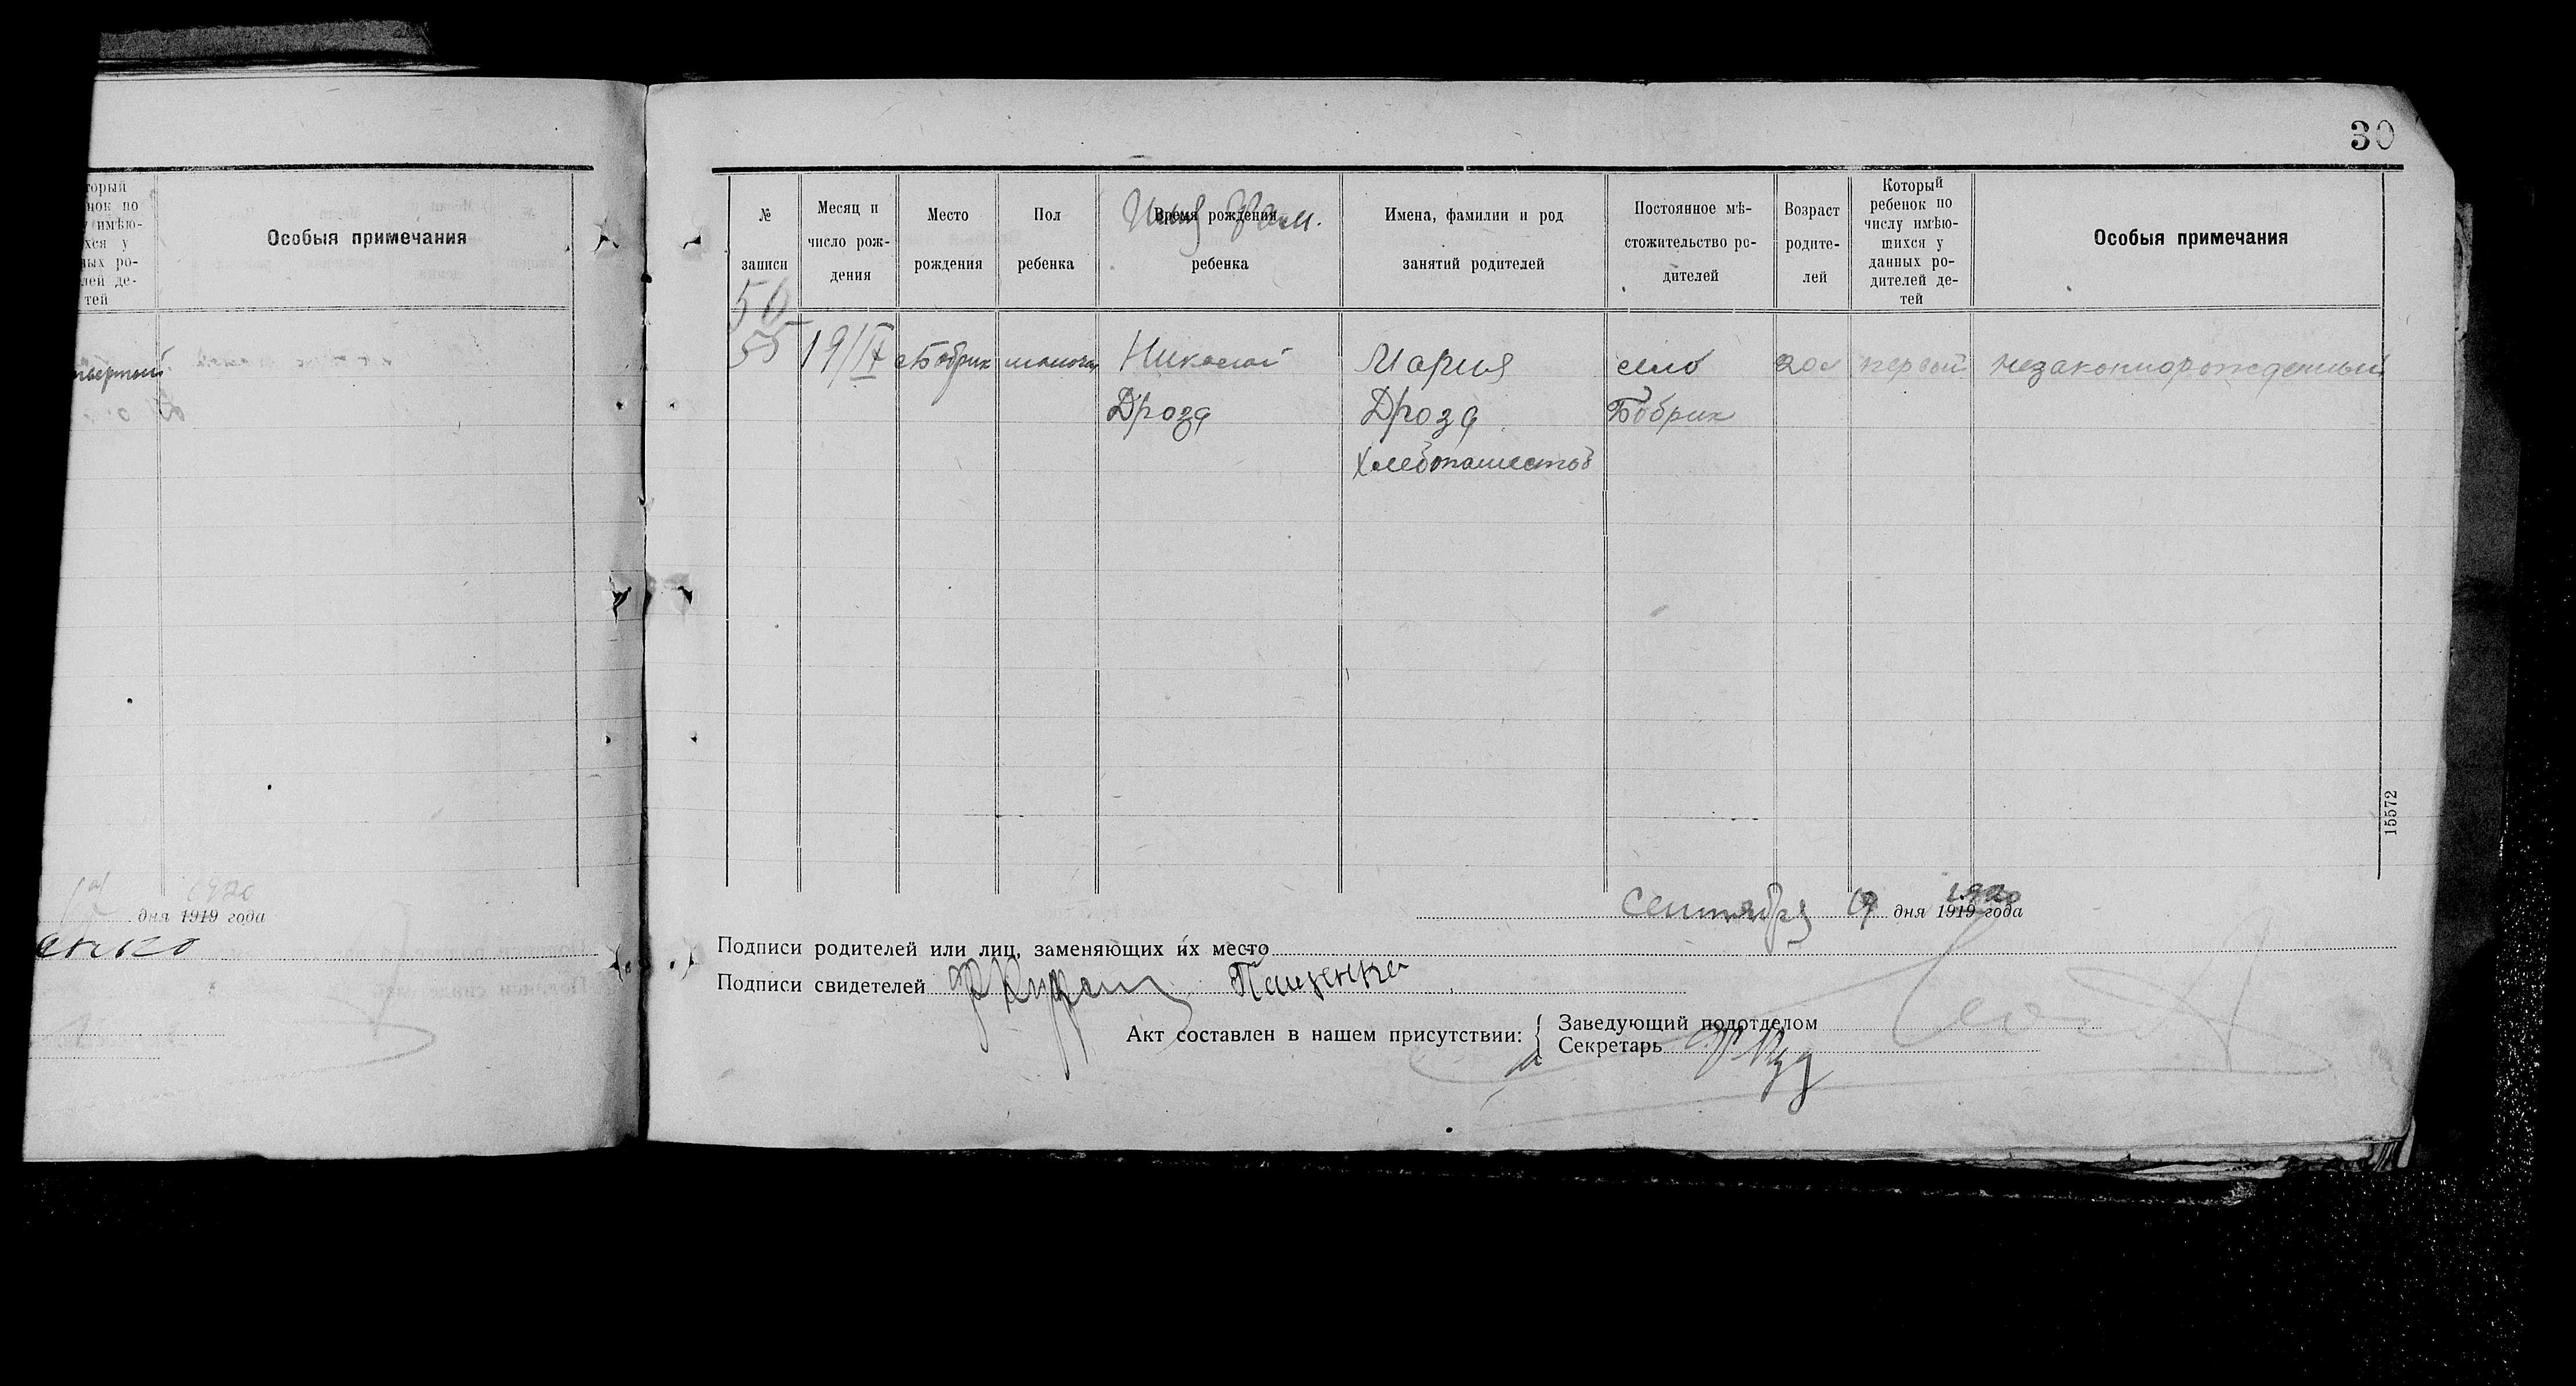 торый
нок по
у имѣю-
хся у
ных ро-
лей де-
тей
Особыя примечания
твертый
1920
дня 1919 года
енко
30
№
записи
Месяц и
число рож-
дения
Место
рождения
Пол
ребенка
Имя Фам.
Время рождения
ребенка
Имена, фамилии и род
занятий родителей
Постоянное мѣ-
стожительство ро-
дителей
Возраст
родите-
лей
Который
ребенок по
числу имѣю-
шихся у
данных ро-
дителей де-
тей
Особыя примечания
50
55 19/IX с Бобрик Николай Мария село 20 л первый незаконнорожденный
Дрозд Дрозд Бобрик
Хлебопашество
15572
1920
Сентября 19 дня 1919 года
Подписи родителей или лиц, заменяющих их место
Подписи свидетелей
Акт составлен в нашем присутствии:
Заведующий подотделом
Секретарь